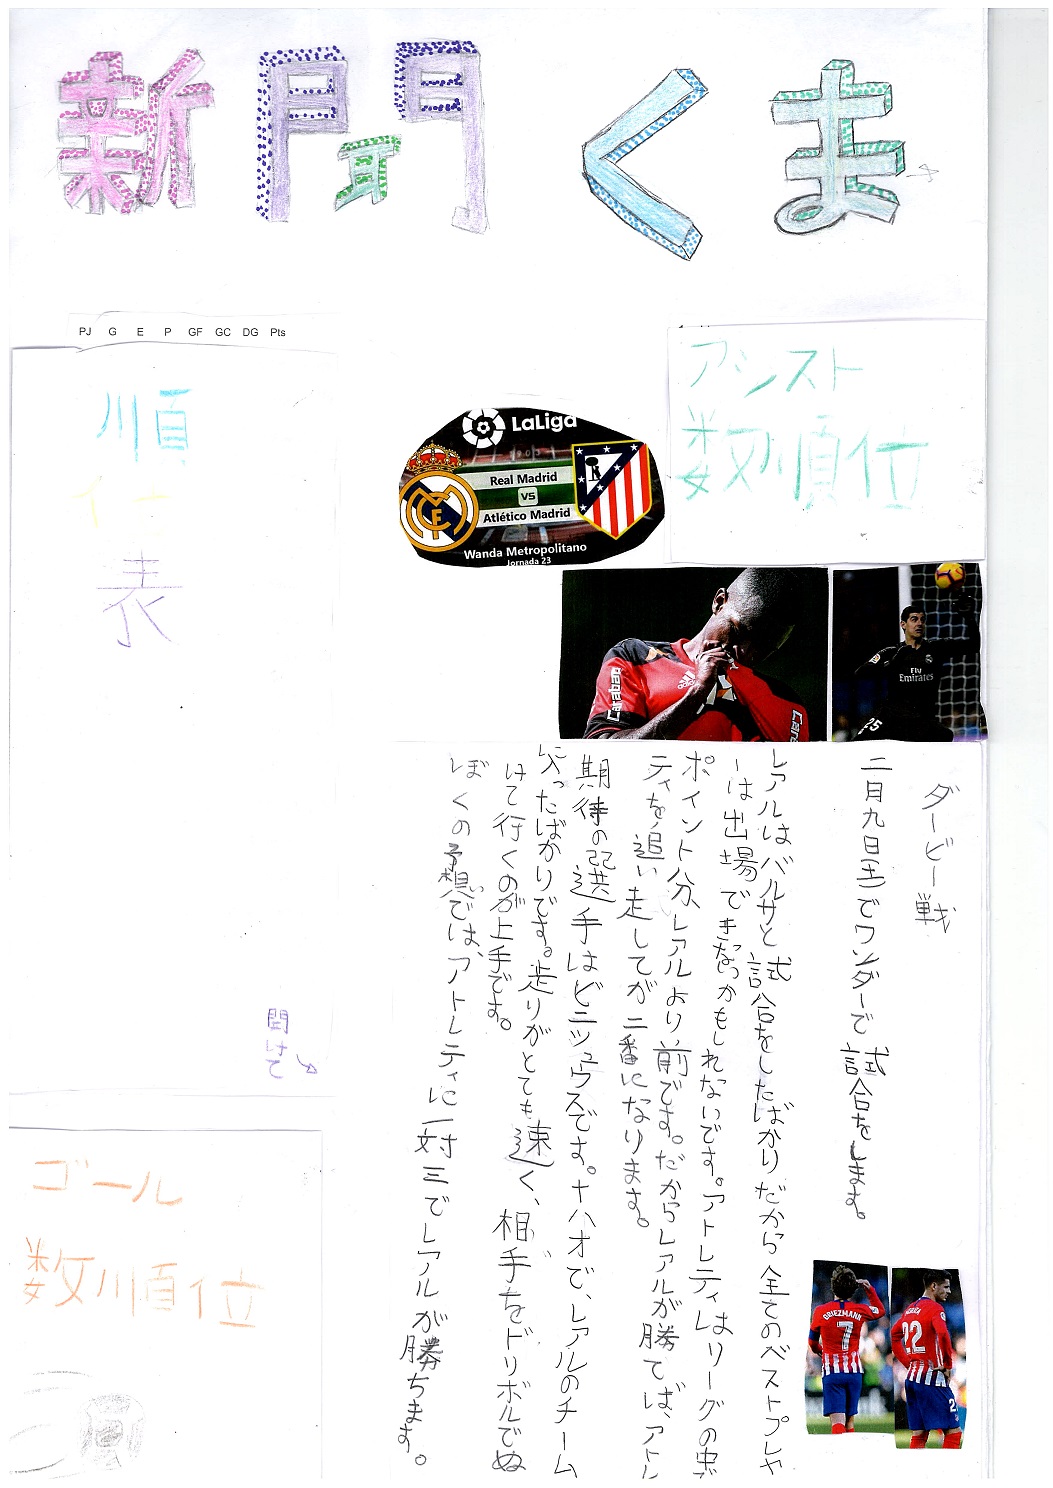 新聞くま
PJ G E P GF GC DG Pts
順
位
表
開けて
アシスト
数順位
LaLiga
Real Madrid
VS
Atlético Madrid
Wanda Metropolitano
Jornada 23
Carabao
Fly
Emirates
25
ダービー戦
二月九日(土)でワンダーで試合をします。
レアルはバルサと試合をしたばかりだから全てのベストプレヤ
ーは出場できなかもしれないです。アトレティはリーグの
ポイント八分、レアルより前です。だからレアルが勝てば、アトレ
ティを追い走してが二番になります。
期待の選手はビニシュウスです。十八才で、レアルのチーム
に入ったばかりです。走りがとても速く、相手をドリボルでぬ
けて行くのが上手です。
ぼくの予想いでは、アトレティに一対三でレアルが勝ちます。
GRIEZMANN
7
22
ゴール
数順位